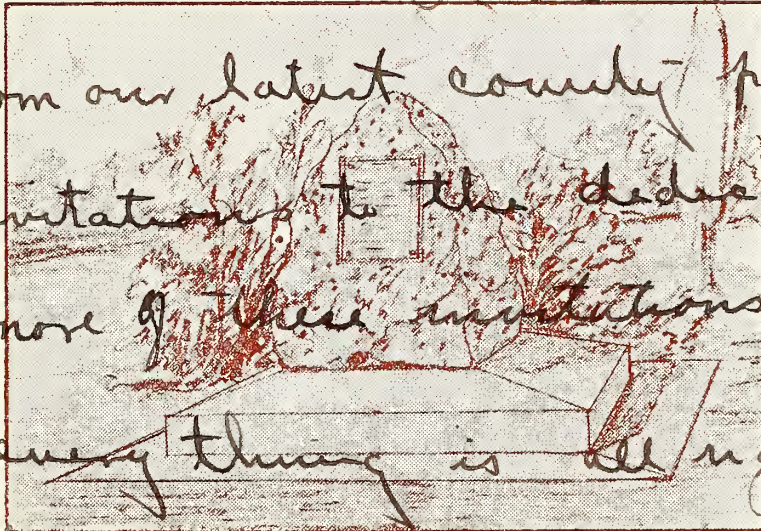 om our latest county p
vitations to the dedic
more of these invitations
every thing is all rig